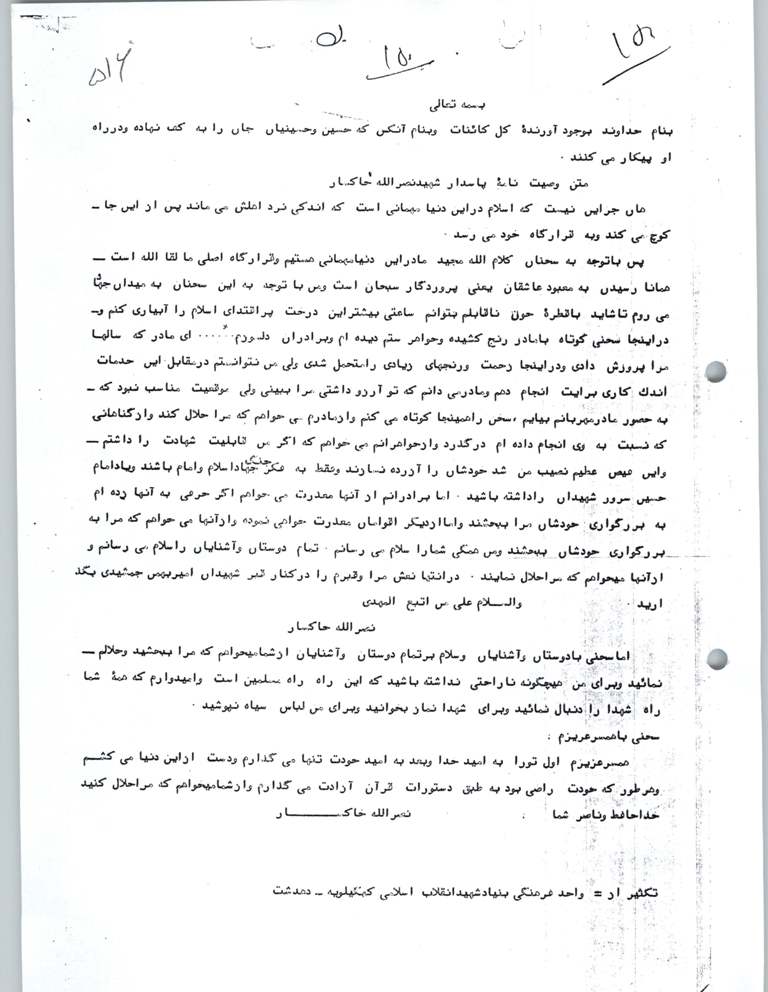 ۱۵۱
۱۵۰
۵۱۶
بسمه تعالی
بنام خداوند بوجود آورندهٔ کل کائنات وبنام آنکس که حسین وحسینیان جان را به کف نهاده ودرراه
او پیکار می کنند ۰
متن وصیت نامهٔ پاسدار شهیدنصرالله خاکسار
هان جزاین نیست که اسلام دراین دنیا میهمانی است که اندکی نزد اهلش می ماند پس از این جا ـ
کوچ می کند وبه قرارگاه خود می رسد ۰
پس باتوجه به سخنان کلام الله مجید مادراین دنیامیهمانی هستیم وقرارگاه اصلی ما لقا الله است ـ
همانا رسیدن به معبود عاشقان یعنی پروردگار سبحان است ومن با توجه به این سخنان به میدان جهاد
می روم تاشاید باقطرهٔ خون ناقابلم بتوانم ساعتی بیشتراین درخت پراقتدای اسلام را آبیاری کنم و ـ
دراینجا سخنی کوتاه بامادر رنج کشیده وخواهر ستم دیده ام وبرادران دلسوزم ۰۰۰۰۰ ای مادر که سالها
مرا پرورش دادی ودراینجا زحمت ورنجهای زیادی رامتحمل شدی ولی من نتوانستم درمقابل این خدمات
اندك کاری برایت انجام دهم ومادرمی دانم که تو آرزو داشتی مرا ببینی ولی موقعیت مناسب نبود که ـ
به حضور مادرمهربانم بیایم ،سخن راهمینجا کوتاه می کنم وازمادرم می خواهم که مرا حلال کند وازگناهانی
که نسبت به وی انجام داده ام درگذرد وازخواهرانم می خواهم که اگر من قابلیت شهادت را داشتم ـ
واین فیض عظیم نصیب من شد خودشان را آزرده نسازند وفقط به فکر جنگ جهاداسلام وامام باشند ویادامام
حسین سرور شهیدان راداشته باشید ۰ اما برادرانم از آنها معذرت می خواهم اگر حرفی به آنها زده ام
به بزرگواری خودشان مرا ببخشند وامااازدیگر اقوامان معذرت خواهی نموده وازآنها می خواهم که مرا به
بزرگواری خودشان ببخشند ومن همگی شمارا سلام می رسانم ۰ تمام دوستان وآشنایان راسلام می رسانم و
ازآنها میخواهم که مراحلال نمایند ۰ درانتها نعش مرا وقبرم را درکنار قبر شهیدان امیربهمن جمشیدی بگذ
ارید ۰ والسلام علی من اتبع المهدی
نصرالله خاکسار
اماسخنی بادوستان وآشنایان وسلام برتمام دوستان وآشنایان ازشمامیخواهم که مرا ببخشید وحلالم ـ
نمائید وبرای من هیچگونه ناراحتی نداشته باشید که این راه راه مسلمین است وامیدوارم که همهٔ شما
راه شهدا را دنبال نمائید وبرای شهدا نماز بخوانید وبرای من لباس سیاه نپوشید ۰
سخنی باهمسرعزیزم :
همسرعزیزم اول تورا به امید خدا وبعد به امید خودت تنها می گذارم ودست ازاین دنیا می کشم
وهرطور که خودت راضی بود به طبق دستورات قرآن آزادت می گذارم وازشمامیخواهم که مراحلال کنید
خداحافظ وناصر شما ۰ نصرالله خاکســـــــار
تکثیر از = واحد فرهنگی بنیادشهیدانقلاب اسلامی کهگیلویه ـ دهدشت